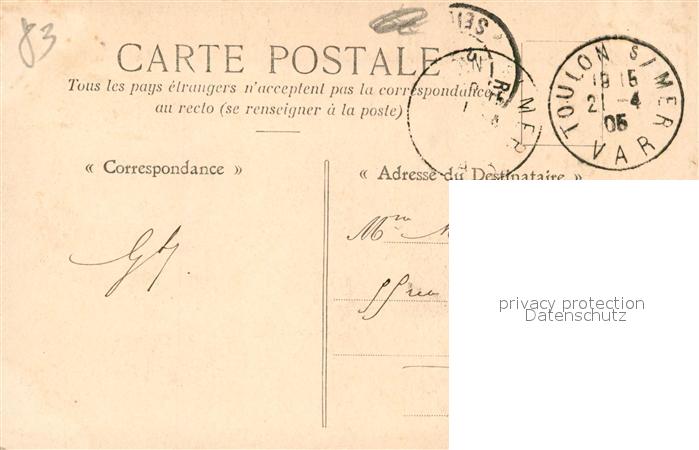 83
CARTE POSTALE
Tous les pays étrangers n'acceptent pas la correspondance
au recto (se renseigner à la poste)
TOULON S/MER
19 15
21 -4
05
VAR
MER
« Correspondance »
« Adresse du Destinataire »
privacy protection
Datenschutz